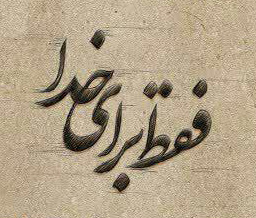 فقط برای خدا